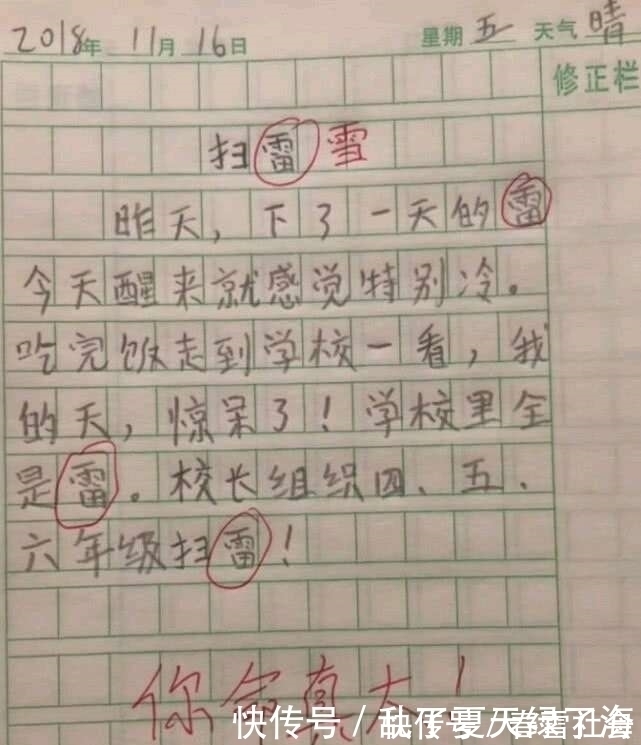 2018年 11月 16日 星期 五 天气 晴
修正栏
扫雷 雪
昨天，下了一天的雷
今天醒来就感觉特别冷。
吃完饭走到学校一看，我
的天，惊呆了！学校里全
是雷。校长组织四、五、
六年级扫雷！
你命真大！
快传号／